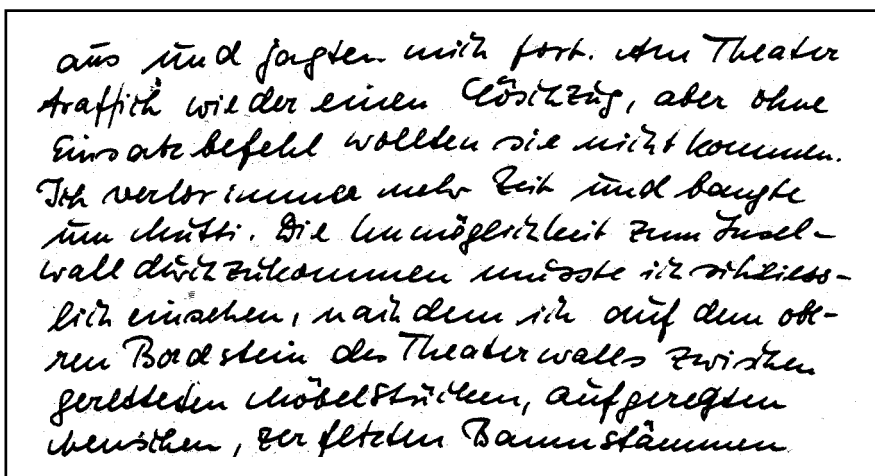 aus und jagten mich fort. Am Theater
traf ich wieder einen Löschzug, aber ohne
Einsatzbefehl wollten sie nicht kommen.
Ich verlor immer mehr Zeit und bangte
um Mutti. Die Unmöglichkeit zum Insel-
wall durchzukommen musste ich schliess-
lich einsehen, nachdem ich auf dem obe-
ren Bordstein des Theaterwalls zwischen
geretteten Möbelstücken, aufgeregten
Menschen, zerfetzten Baumstämmen